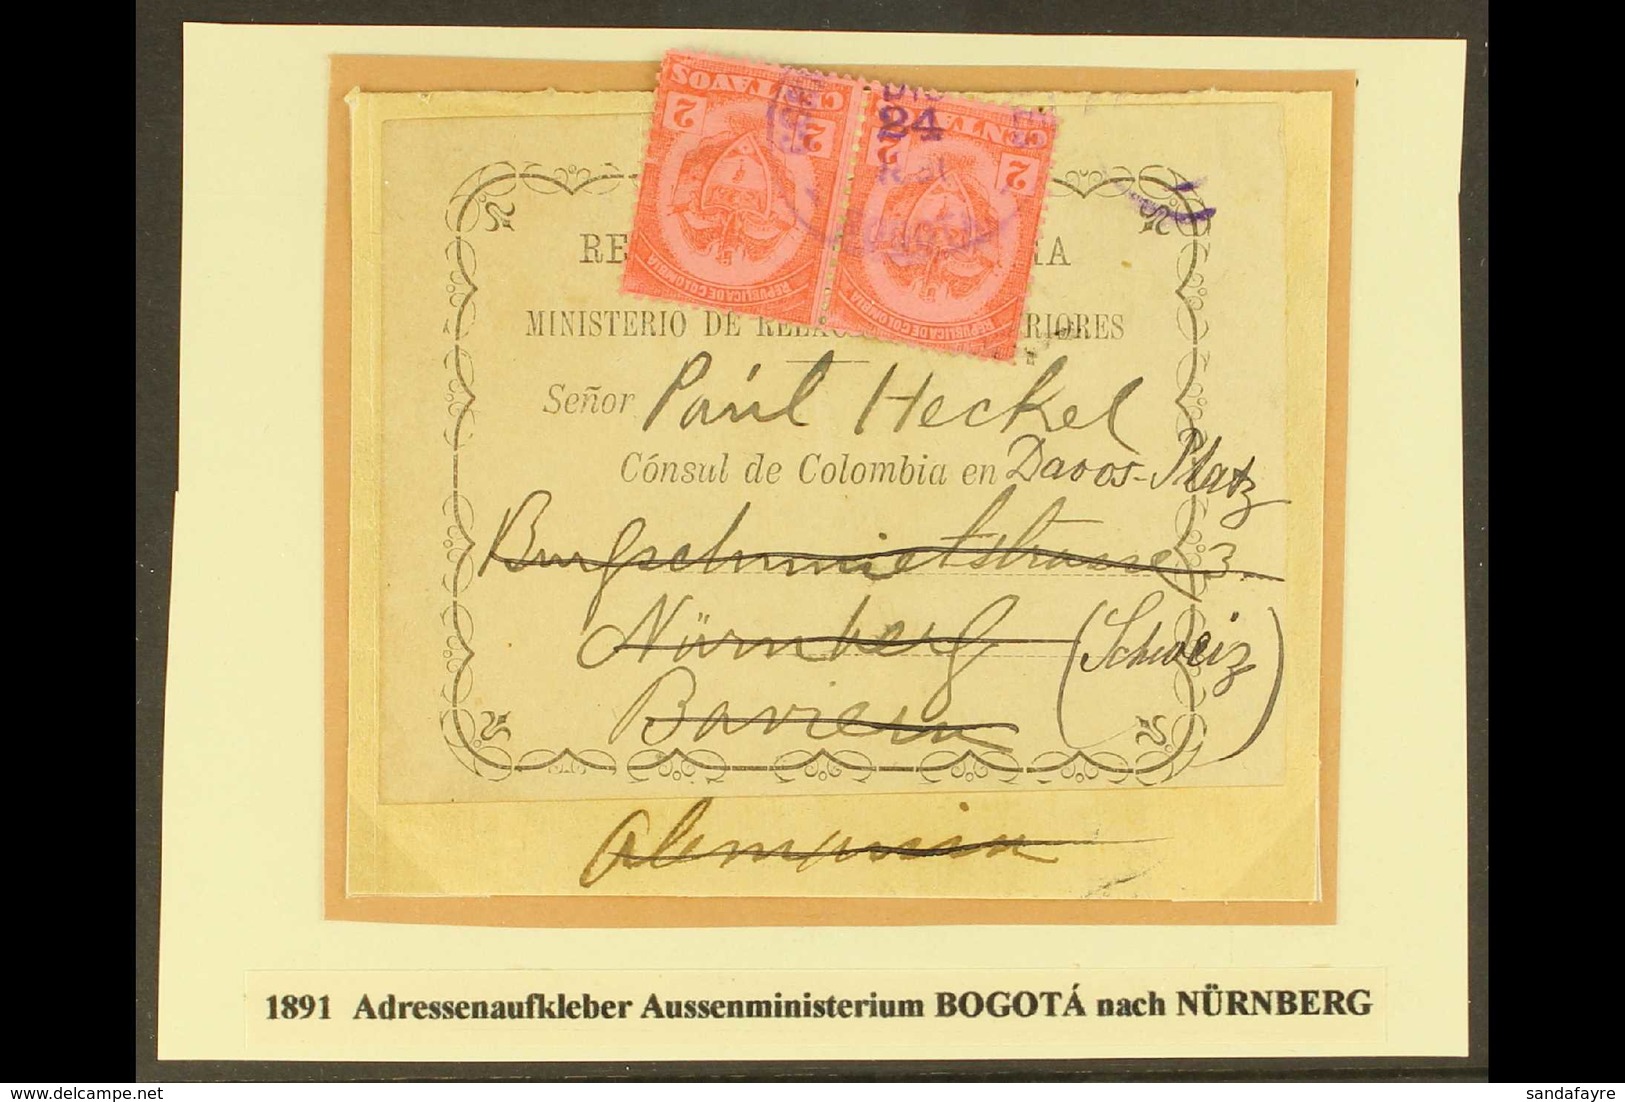 CENTAVOS
2 2
REPUBLICA DE COLOMBIA
CENTAVOS
2 2
REPUBLICA DE COLOMBIA
DIC
24
BOGOTA
RE RA
MINISTERIO DE RELAC ERIORES
Señor Paul Heckel
Cónsul de Colombia en Davos-Platz
Burgschmietstrasse 3.
Nürnberg (Schweiz)
Baviera
Alemania
1891 Adressenaufkleber Aussenministerium BOGOTÁ nach NÜRNBERG
sandafayre